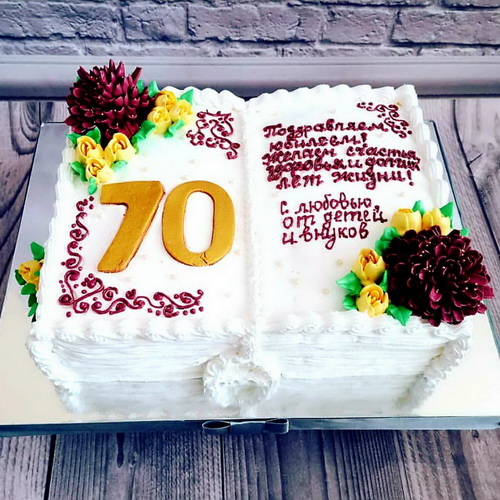 70
Поздравляем с
юбилеем!
Желаем счастья
здоровья и долгих
лет жизни!
С любовью
от детей
и внуков